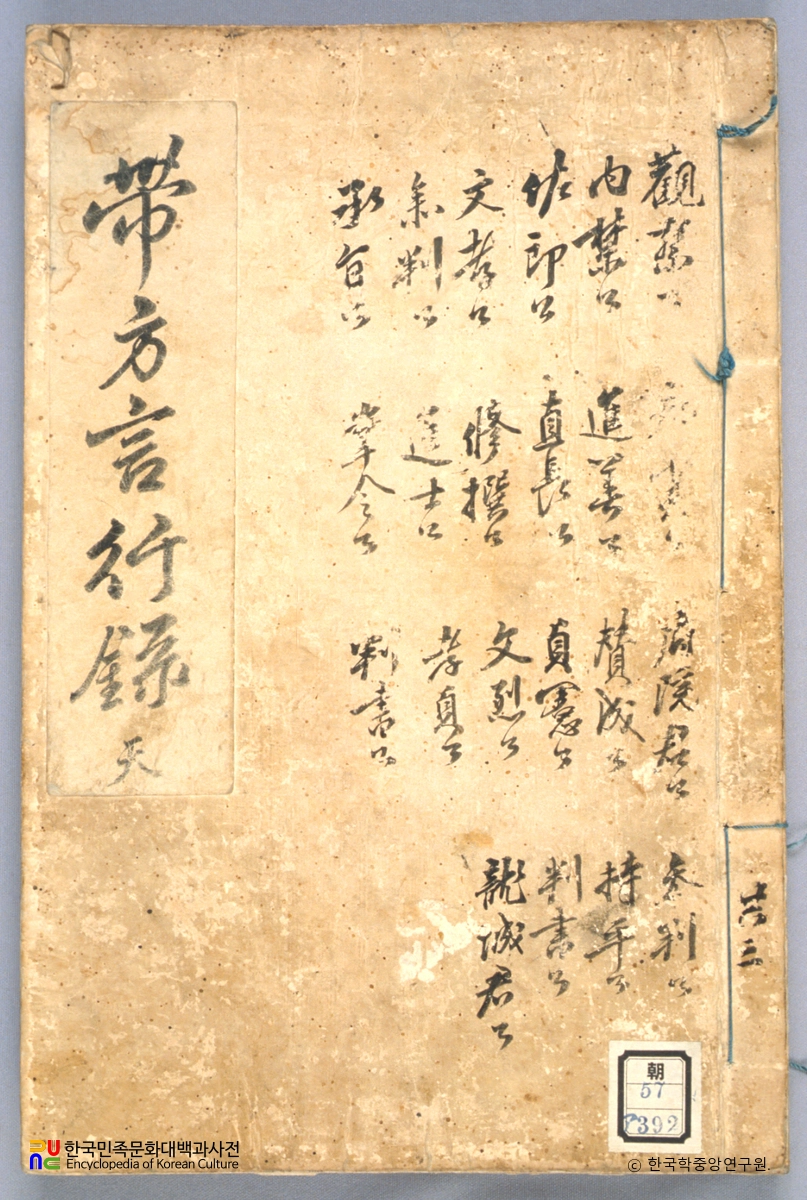 帶方言行錄 天
觀察公
君公 參判公
內禁公 進善公 贊成公 持平公
佐郎公 直長公 貞憲公 判書公
文孝公 修撰公 文烈公 龍城君公
參判公 進士公 孝貞公
承旨公 掌令公 判書公
共三
朝
57
392
한국민족문화대백과사전
Encyclopedia of Korean Culture
ⓒ 한국학중앙연구원.